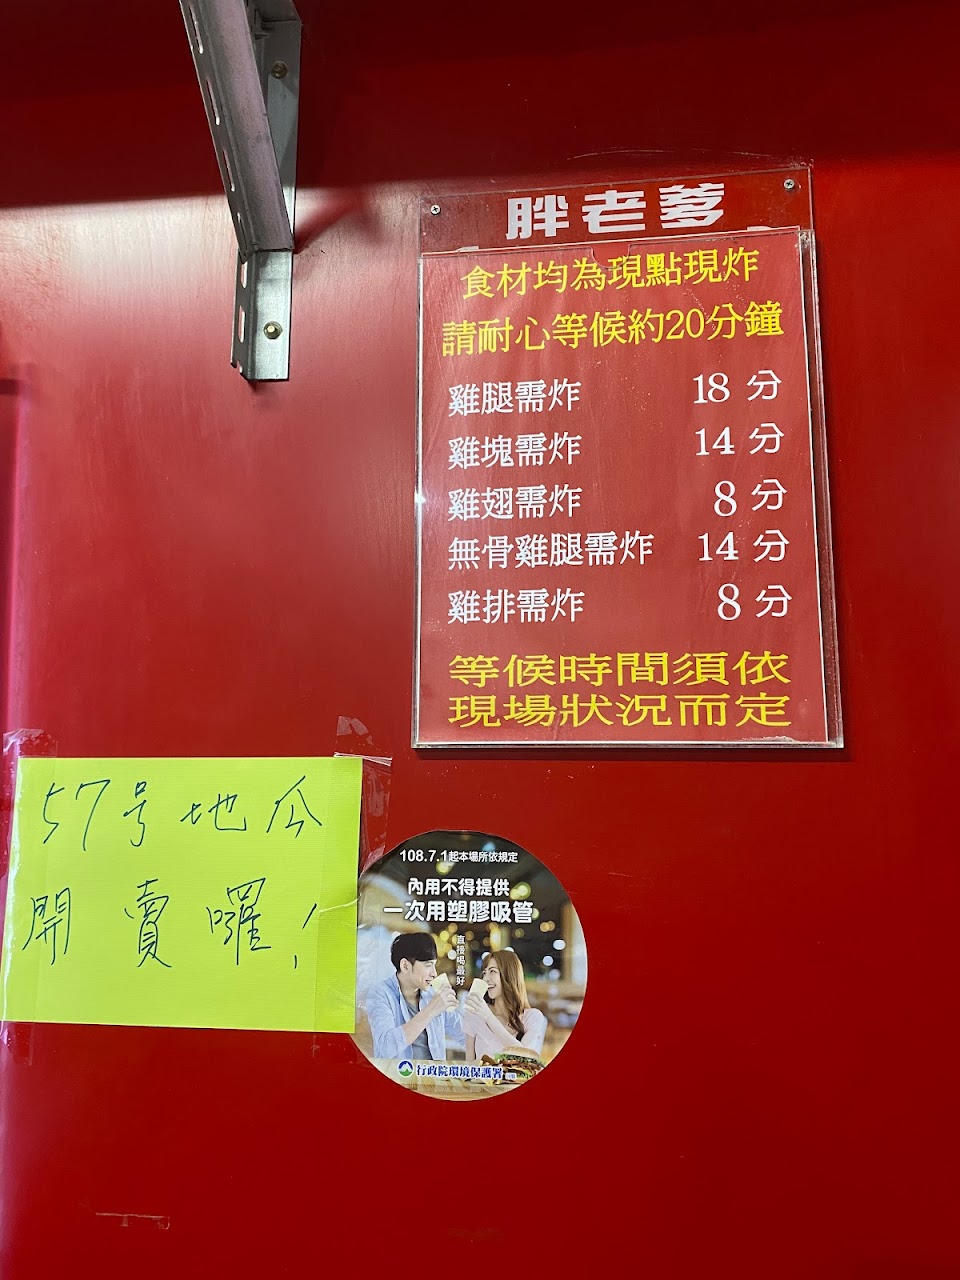 胖老爹
食材均為現點現炸
請耐心等候約20分鐘
雞腿需炸 18 分
雞塊需炸 14 分
雞翅需炸 8 分
無骨雞腿需炸 14 分
雞排需炸 8 分
等候時間須依
現場狀況而定
57号地瓜
開賣囉!
108.7.1起本場所依規定
內用不得提供
一次用塑膠吸管
直接喝最好
行政院環境保護署